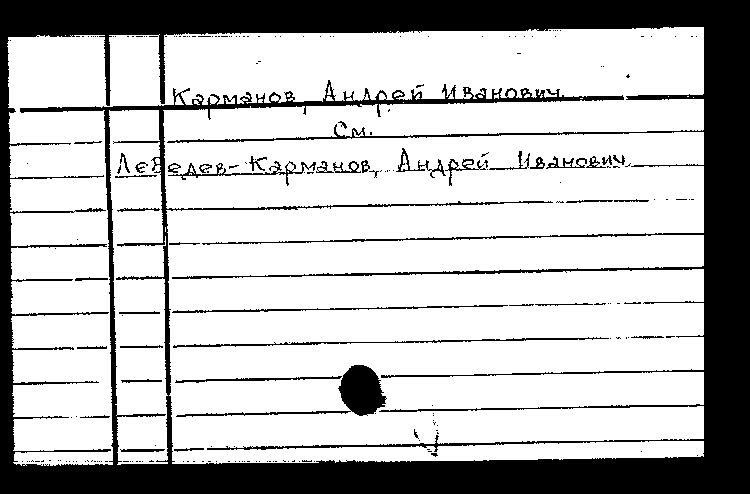 Карманов, Андрей Иванович
См.
Лебедев-Карманов, Андрей Иванович